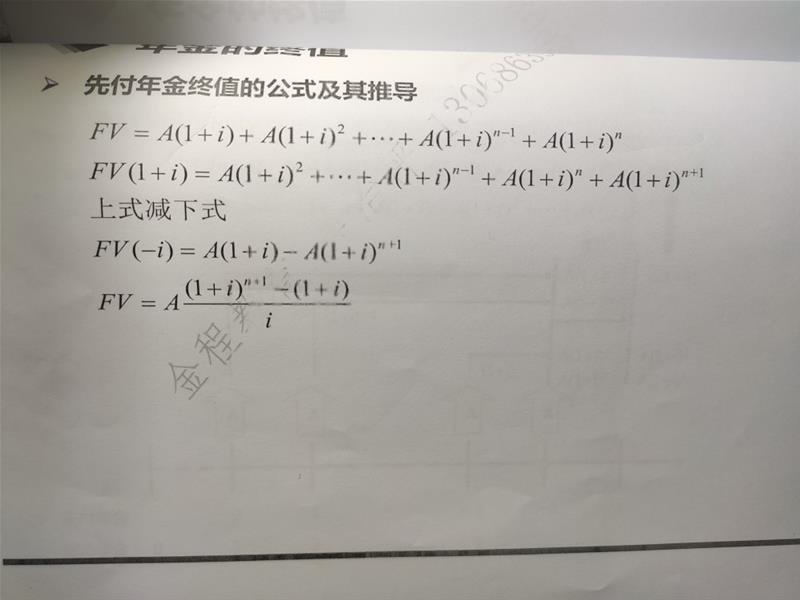 年金的终值
➢ 先付年金终值的公式及其推导
FV = A(1+i) + A(1+i)² + ⋯ + A(1+i)ⁿ⁻¹ + A(1+i)ⁿ
FV(1+i) = A(1+i)² + ⋯ + A(1+i)ⁿ⁻¹ + A(1+i)ⁿ + A(1+i)ⁿ⁺¹
上式减下式
FV(−i) = A(1+i) − A(1+i)ⁿ⁺¹
FV = A ((1+i)ⁿ⁺¹ − (1+i)) / i
金程